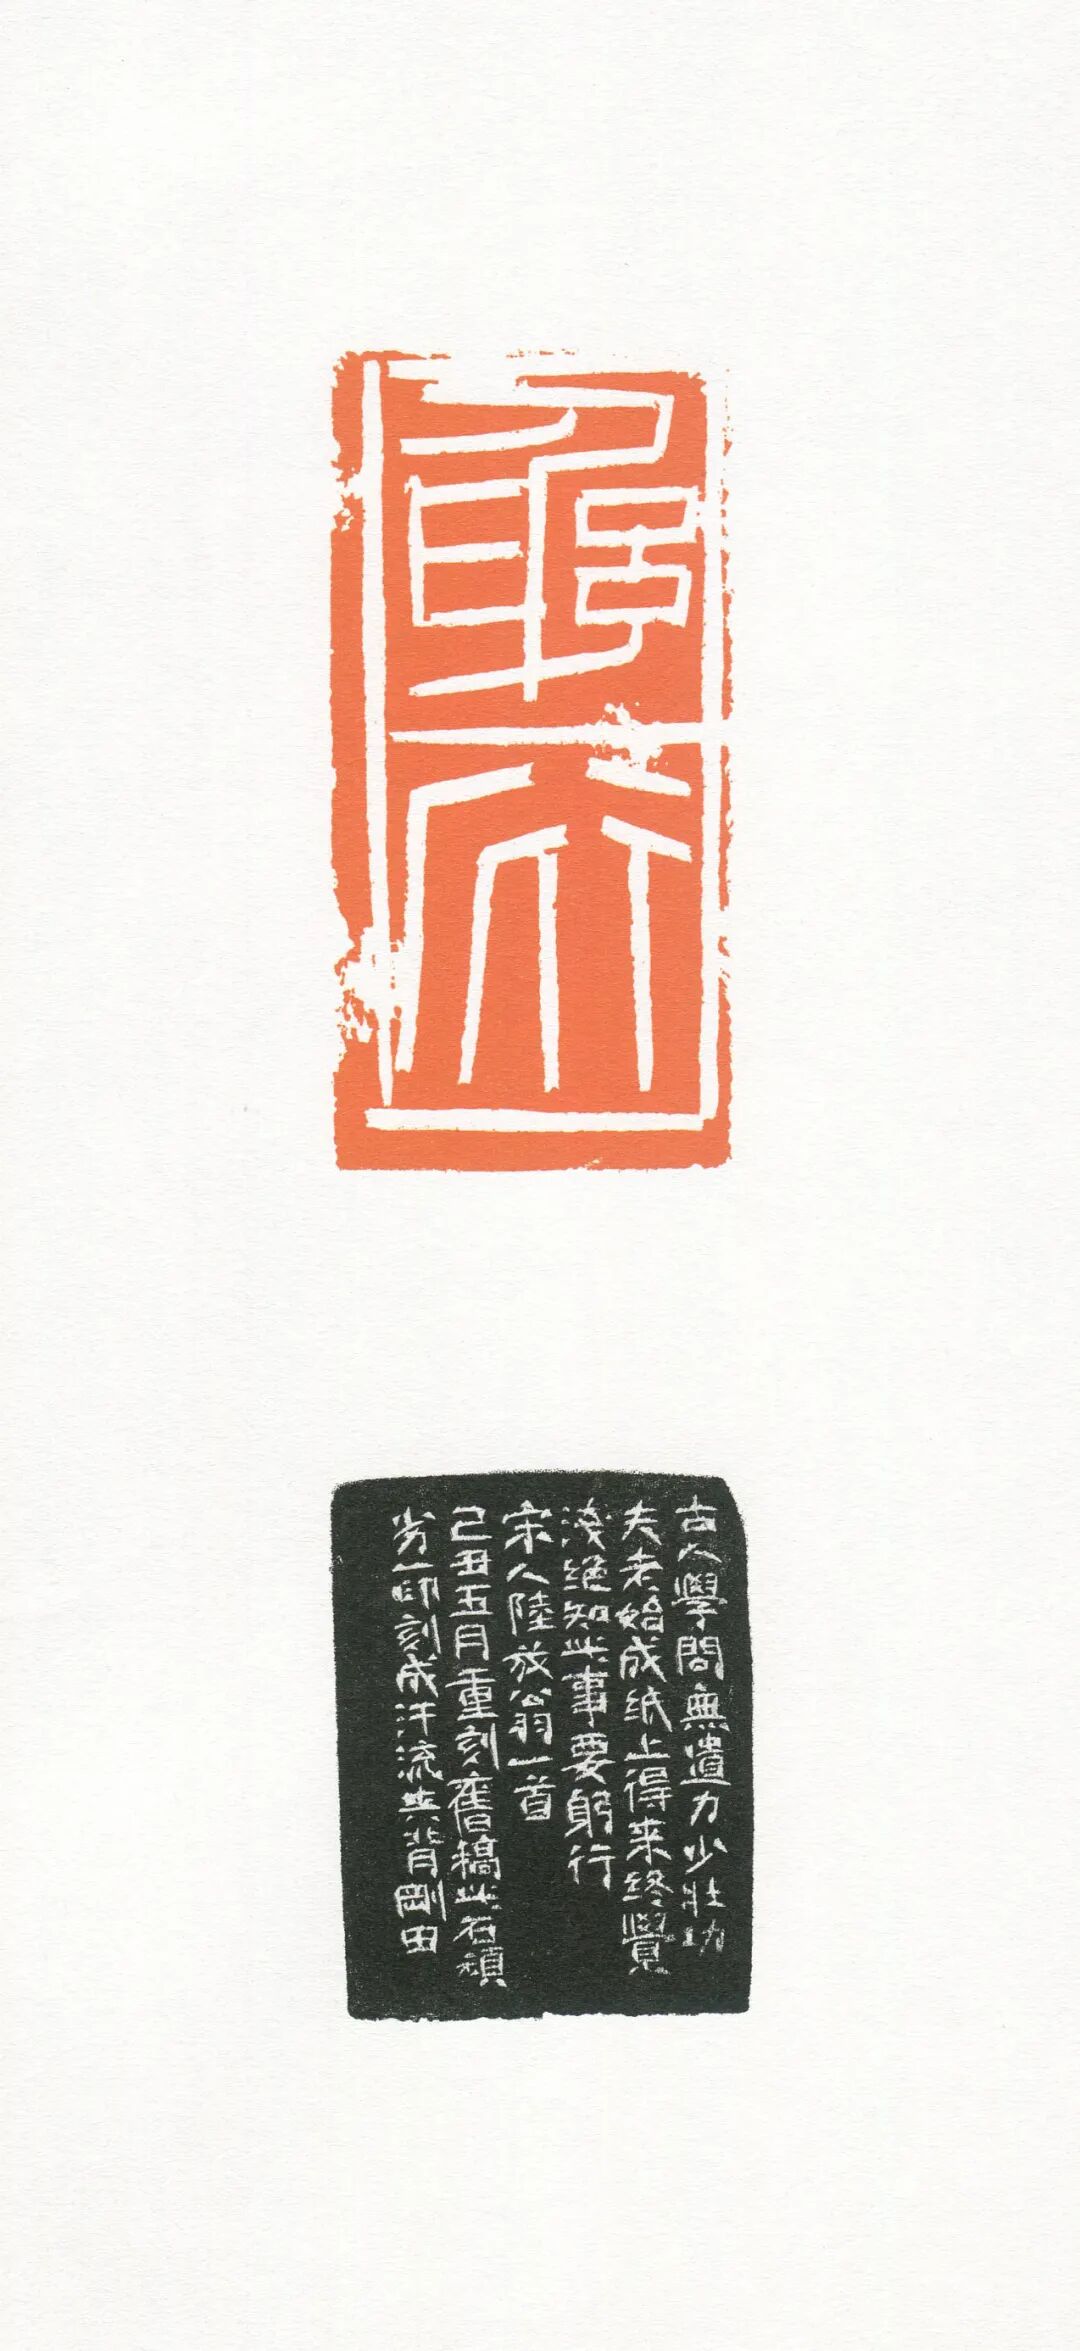 躳行
古人學問無遺力少壯功
夫老始成纸上得来終覺
淺絕知此事要躬行
宋人陸放翁一首
己丑五月重刻舊稿此石頑
劣一印刻成汗流背剛田